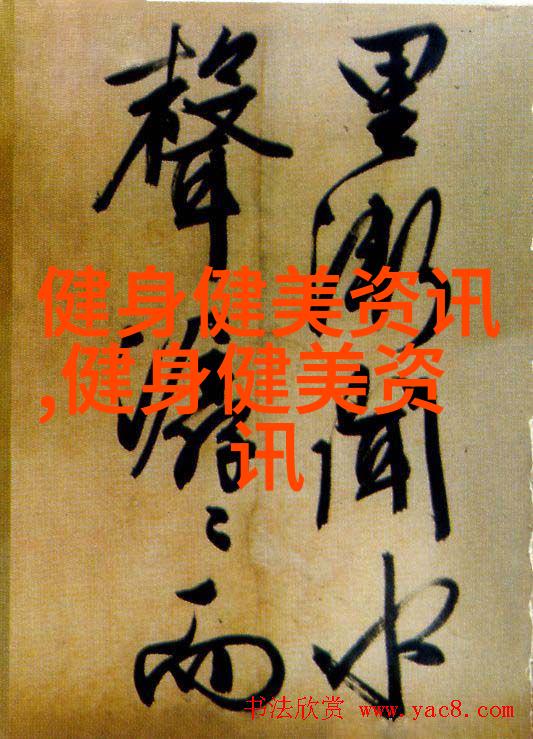 里漸聞水
聲潺〻而
健身健美资讯
,健身健美资
讯
书法欣赏 www.yac8.com